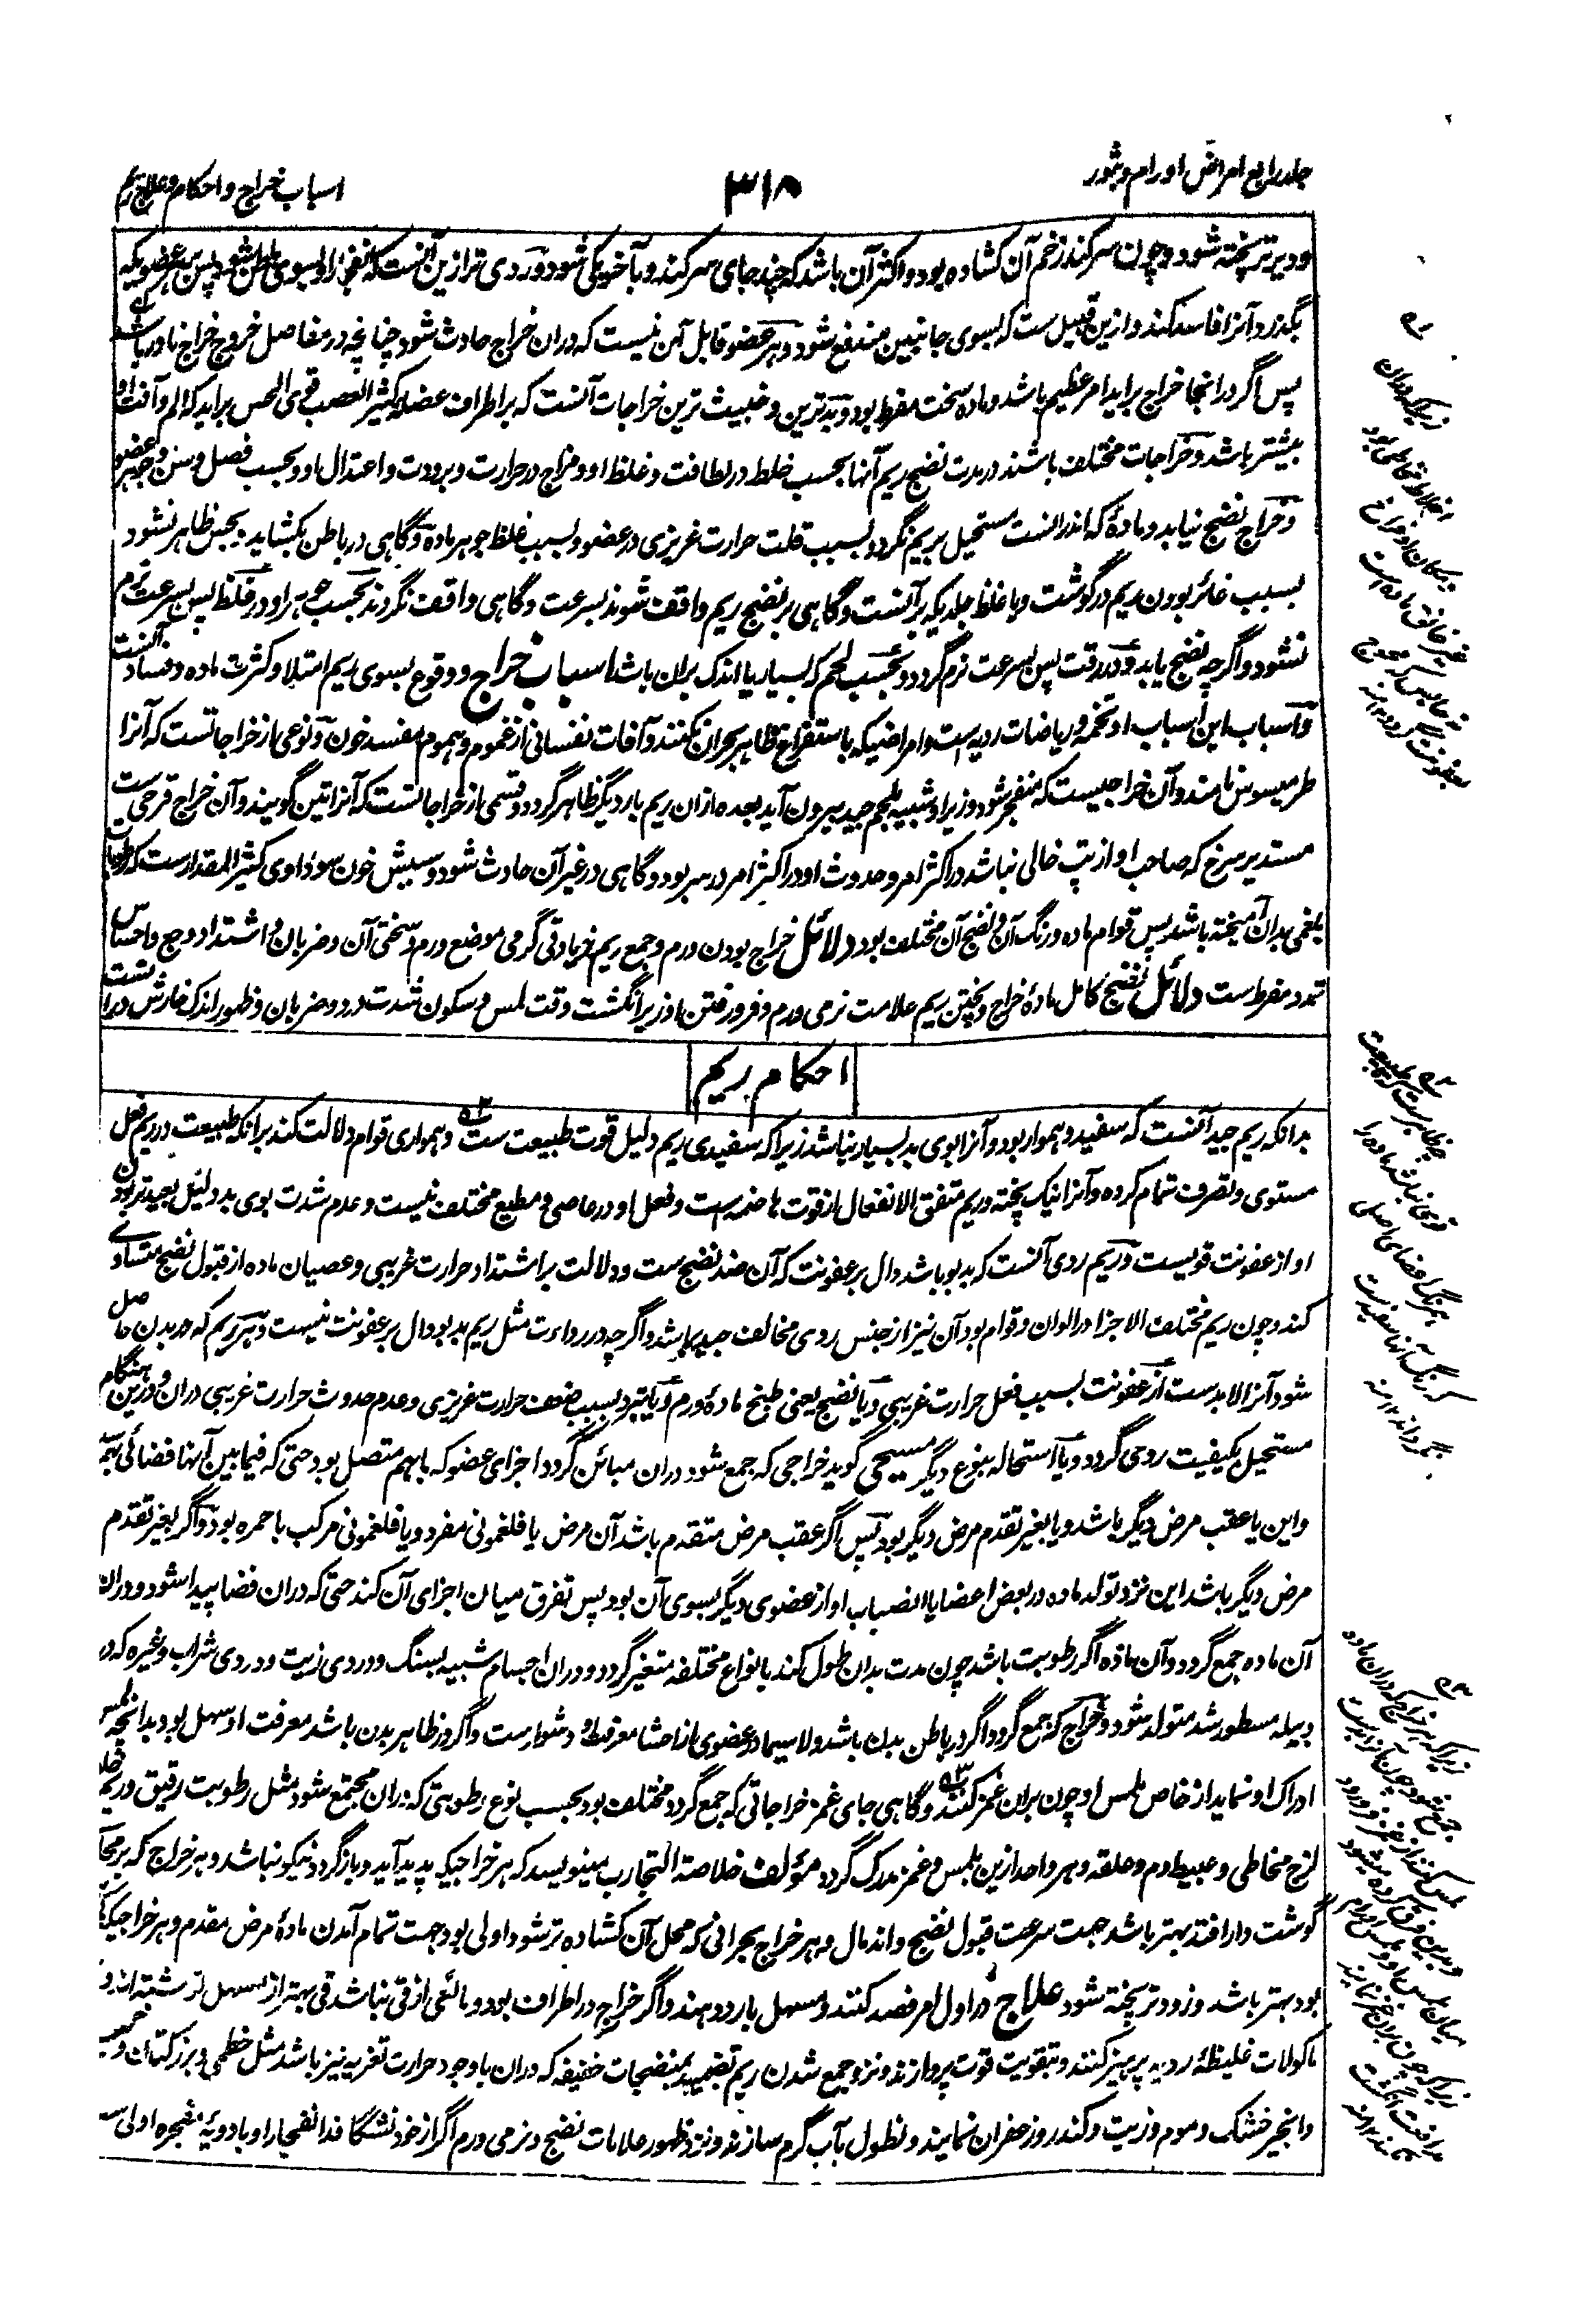 جلد رابع امراض اورام و بثور
۳۱۸
اسباب خراج و احکام و علاج ریم
و دیرتر پخته شود و چون سر کند زخم آن کشاده بود و اکثر آن باشد که چند جای سر کند و با خر یکی شود و ردی ترازین آنست که انفجار او بسوی باطن شود پس بهر عضویکه
بگذرد آنرا فاسد کند و ازین قبیل ست که بسوی جانبین مندفع شود و هر عضو قابل آن نیست که دران خراج حادث شود چنانچه در مفاصل خروج خراج نادر باشد
پس اگر در انجا خراج براید امر عظیم باشد و ماده سخت مفرط بود و بدترین و خبیث ترین خراجات آنست که بر اطراف عضله کثیر العصب قوی الحس براید که الم و آفت او
بیشتر باشد و خراجات مختلف باشند در مدت نضج ریم آنها بحسب خلط در لطافت و غلظ او و مزاج در حرارت و برودت و اعتدال او و بحسب فصل و سن و جوهر عضو
و خراج نضج نیابد و مادهٔ که اندر انست مستحیل بریم نگردد بسبب قلت حرارت غریزی در عضو و بسبب غلظ جوهر ماده و گاهی در باطن بکشاید و بحس ظاهر نشود
بسبب غائر بودن ریم در گوشت و یا غلظ جلدیکه بر آنست و گاهی بر نضج ریم واقف شوند بسرعت و گاهی واقف نگردند بحسب جوهر او در غلظ پس بسرعت نرم
نشود و اگرچه نضج یابد و در رقت پس بسرعت نرم گردد و بحسب لحم که بسیار یا اندک بران باشد اسباب خراج و وقوع بسوی ریم امتلا و کثرت ماده و فساد آنست
و اسباب این اسباب او تخمه و ریاضات ردیه است و امراضیکه باستفراغ ظاهر بحران نکنند و آفات نفسانی از غموم و هموم مفسد خون و نوعی از خراجاتست که آنرا
طرمیسوس نامند و آن خراجیست که منفجر شود و زیر او شبیه بلحم جید بیرون آید بعده ازان ریم بار دیگر ظاهر گردد و قسمی از خراجا لست که آنرا تین گویند و آن خراج قرحی ست
مستدیر سرخ که صاحب او از تپ خالی نباشد در اکثر امر و حدوث او در اکثر امر در سر بود و گاهی در غیر آن حادث شود و سببش خون سوداوی کثیر المقدار ست که رطوبات
بلغمی بدان آمیخته باشد پس قوام ماده و رنگ آن و نضج آن مختلف بود دلائل خراج بودن ورم و جمع ریم زیادتی گرمی موضع ورم و سختی آن و ضربان و اشتداد وجع و احساس
تمدد مفرط ست دلائل نضج کامل مادهٔ خراج و پختن ریم علامت نرمی ورم و فرو رفتن او زیر انگشت وقت لمس و سکون شدت درد و ضربان و ظهور اندک خارش در انست
احکام ریم
بدانکه ریم جید آنست که سفید و هموار بود و آنرا بوی بد بسیار نباشد زیرا که سفیدی ریم دلیل قوت طبیعت ست و همواری قوام دلالت کند برانکه طبیعت در ریم فعل
مستوی و تصرف تمام کرده و آنرا نیک پخته و ریم متفق الانفعال از قوت هاضمه است و فعل او در عاصی و مطیع مختلف نیست و عدم شدت بوی بد دلیل بعید تر بودن
او از عفونت قویست و ریم ردی آنست که بدبو باشد دال بر عفونت که آن ضد نضج ست و دلالت بر اشتداد حرارت غریبی و عصیان ماده از قبول نضج متساوی
کند و چون ریم مختلف الاجزا در الوان و قوام بود آن نیز از جنس ردی مخالف جید باشد و اگرچه در رداءت مثل ریم بدبو دال بر عفونت نیست و هر ریم که در بدن حاصل
شود آنرا لابدست از عفونت بسبب فعل حرارت غریبی و یا نضج یعنی طبخ مادهٔ ورم و یا تبرد بسبب ضعف حرارت غریزی و عدم حدوث حرارت غریبی دران و درین هنگام
مستحیل بکیفیت ردی گردد و یا استحاله بنوع دیگر مسیحی گوید خراجی که جمع شود دران مبائن گردد اجزای عضو که باهم متصل بود حتی که فیما بین آنها فضائی بهم
و این یا عقب مرض دیگر باشد و یا بغیر تقدم مرض دیگر بود پس اگر عقب مرض متقدم باشد آن مرض یا فلغمونی مفرد و یا فلغمونی مرکب با حمره بود و اگر بغیر تقدم
مرض دیگر باشد این نزد تولد ماده در بعض اعضا یا انصباب او از عضوی دیگر بسوی آن بود پس تفرق میان اجزای آن کند حتی که دران فضا پیدا شود و دران
آن ماده جمع گردد و آن ماده اگر رطوبت باشد چون مدت بدان طول کند بانواع مختلفه متغیر گردد و دران اجسام شبیه بسنگ و دردی زیت و دردی شراب و غیره که در
دبیله مسطور شد متولد شود و خراج که جمع گردد اگر در باطن بدن باشد ولا سیما در عضوی از احشا معرفت او دشوار ست و اگر در ظاهر بدن باشد معرفت او سهل بود بدانچه لمس
ادراک او نماید از خاص لمس او چون بران غمز کنند و گاهی جای غمز خراجاتی که جمع گردد مختلف بود بحسب نوع رطوبتی که دران مجتمع شود مثل رطوبت رقیق و ریم
لزج مخاطی و عبیط دم و علقه و هر واحد ازین بلمس و غمز مدرک گردد مؤلف خلاصة التجارب مینویسد که هر خراجیکه پدید آید و باز گردد نیکو نباشد و هر خراج که بر محل
گوشت دار افتد بهتر باشد جهت سرعت قبول نضج و اندمال و هر خراج بحرانی که محل آن کشاده تر شود اولی بود جهت تمام آمدن مادهٔ مرض مقدم و هر خراجیکه
بود بهتر باشد و زودتر پخته شود علاج در اول امر فصد کنند و مسهل بارد دهند و اگر خراج در اطراف بود و مانعی از قی نباشد قی بهتر از مسهل
ماکولات غلیظهٔ ردیه پرهیز کنند و بتقویت قوت پردازند و نزد جمع شدن ریم تضمید بمنضجات خفیفه که دران با وجود حرارت تغریه نیز باشد مثل خطمی و بزر کتان و
و انجیر خشک و موم و زیت و کندر و زعفران نمایند و نطول بآب گرم سازند و نزد ظهور علامات نضج و نرمی ورم اگر از خود نشگافد انفجار او بادویهٔ منفجره اولی
زیرا که دران